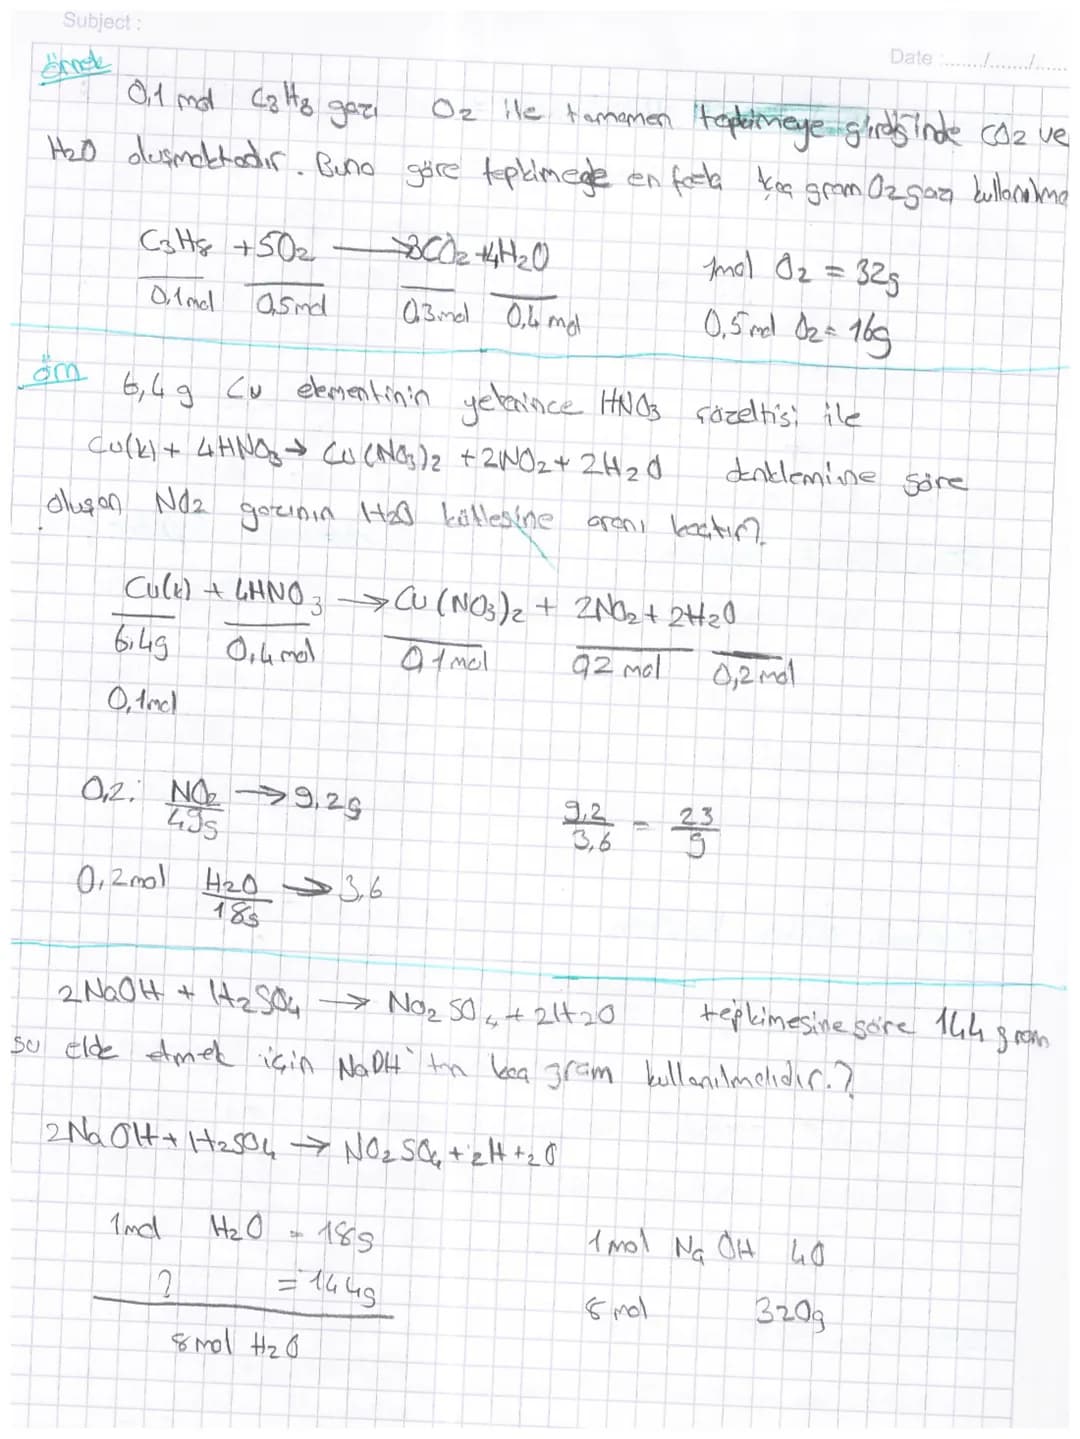 Subject :
Date ......./......./......
Örnek
0,1 mol C3H8 gazı O2 ile tamamen tepkimeye girdiğinde CO2 ve
H2O oluşmaktadır. Buna göre tepkimede en fazla kaç gram O2 gazı kullanılma
C3H8 + 5O2 → 3CO2 + 4H2O
1mol O2 = 32g
0,1mol 0,5mol 0,3mol 0,4 mol
0,5 mol O2 = 16g
örn
6,4 g Cu elementinin yeterince HNO3 çözeltisi ile
Cu(k) + 4HNO3 → Cu(NO3)2 + 2NO2 + 2H2O denklemine göre
oluşan NO2 gazının H2O kütlesine oranı kaçtır?
Cu(k) + 4HNO3 → Cu(NO3)2 + 2NO2 + 2H2O
6,4g 0,4 mol 0,1 mol 0,2 mol 0,2 mol
0,1mol
0,2. NO2 → 9,2g
9,2 / 3,6 = 23 / 9
0,2 mol H2O → 3,6
18g
2NaOH + H2SO4 → Na2SO4 + 2H2O tepkimesine göre 144 gram
su elde etmek için NaOH'tn kaç gram kullanılmalıdır.?
2NaOH + H2SO4 → NO2SO4 + 2H+2O
1mol H2O = 18g
1 mol NaOH 40
? = 144g
8 mol 320g
8 mol H2O